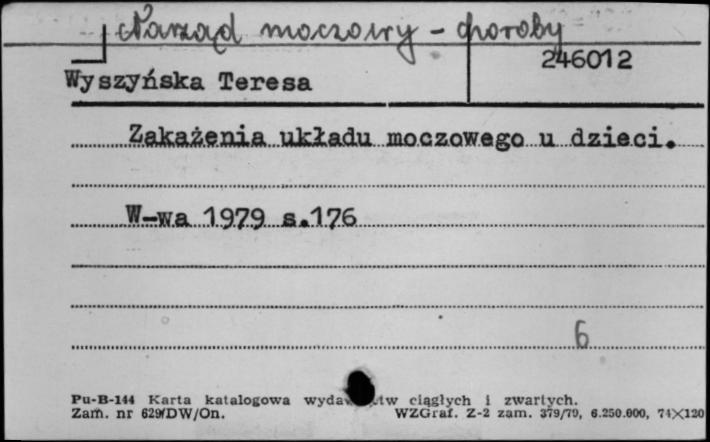 Narząd moczowy - choroby
246012
Wyszyńska Teresa
Zakażenia układu moczowego u dzieci.
W-wa 1979 s.176
6
Pu-B-144 Karta katalogowa ciągłych i zwartych.
Zam. nr 629/DW/On. WZGraf. Z-2 zam. 379/79, 6.250.000, 74×120